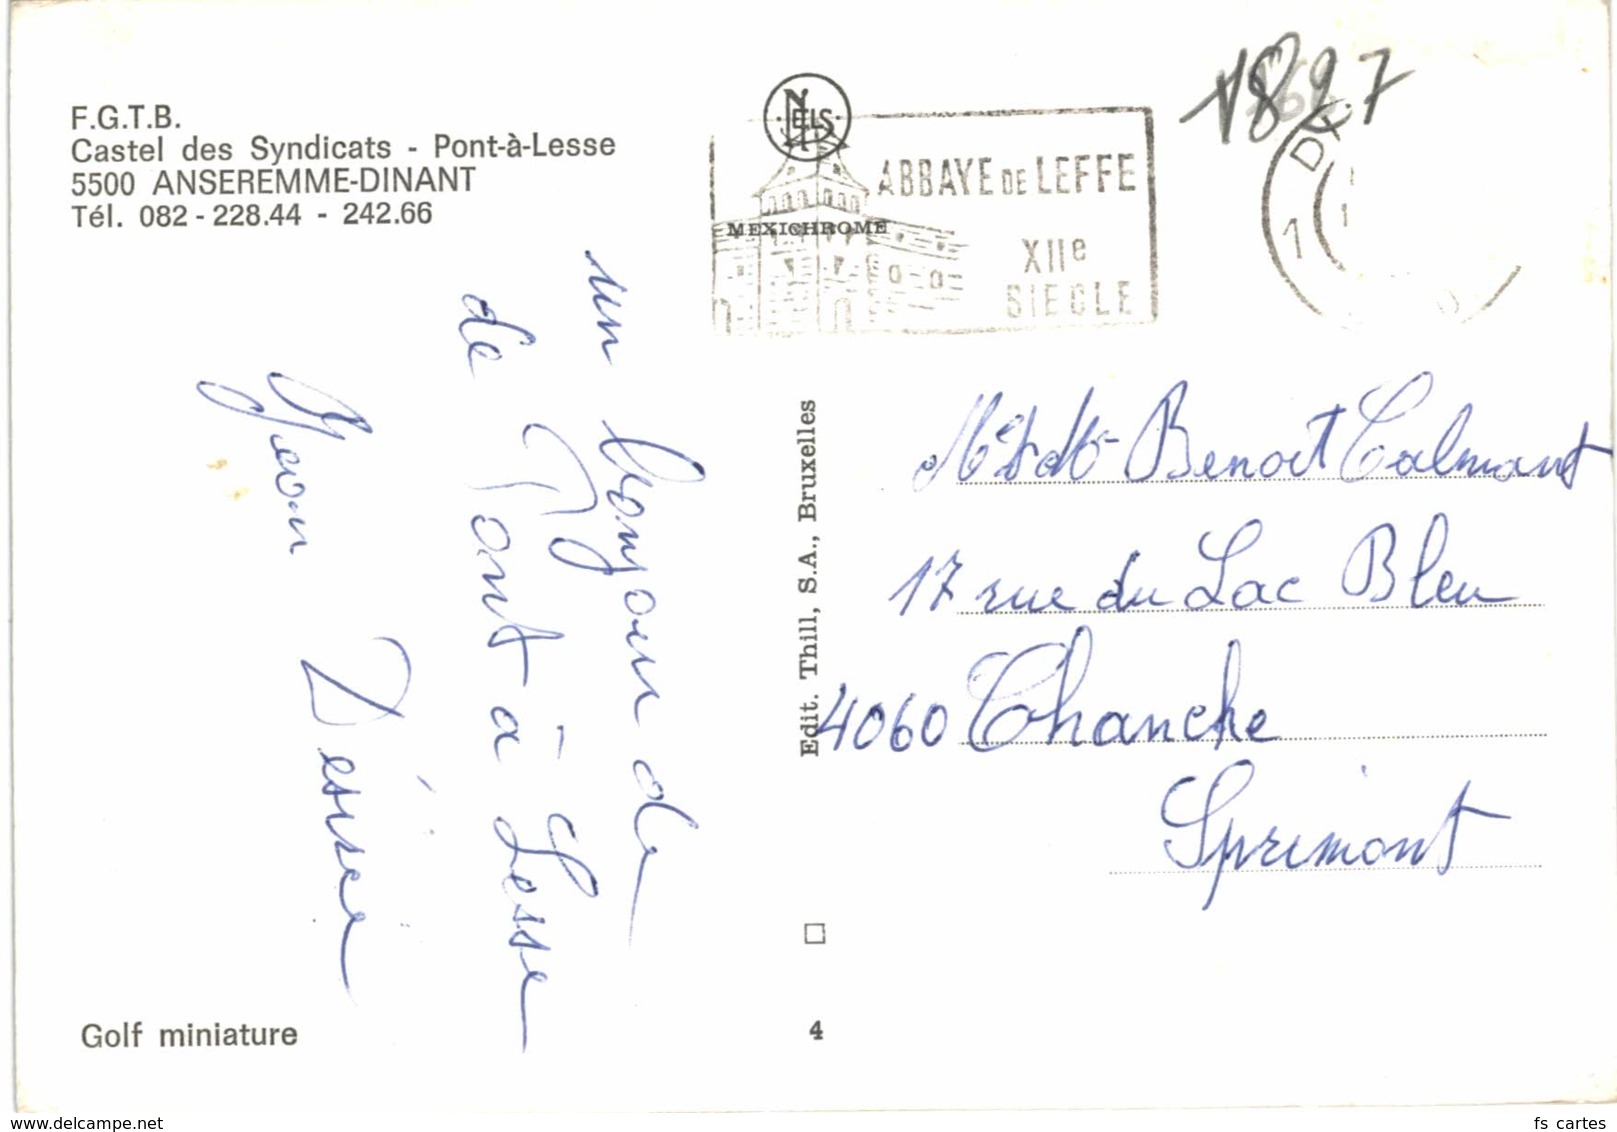 F.G.T.B.
Castel des Syndicats - Pont-à-Lesse
5500 ANSEREMME-DINANT
Tél. 082 - 228.44 - 242.66
NELS
MEXICHROME
ABBAYE DE LEFFE
XIIe
SIECLE
1827
un bonjour de
de Pont à Lesse
Jean Désirée
Edit. Thill, S.A., Bruxelles
Benoit Calmant
17 rue du Lac Bleu
4060 Chanche
Sprimont
Golf miniature
4
delcampe.net
fs_cartes